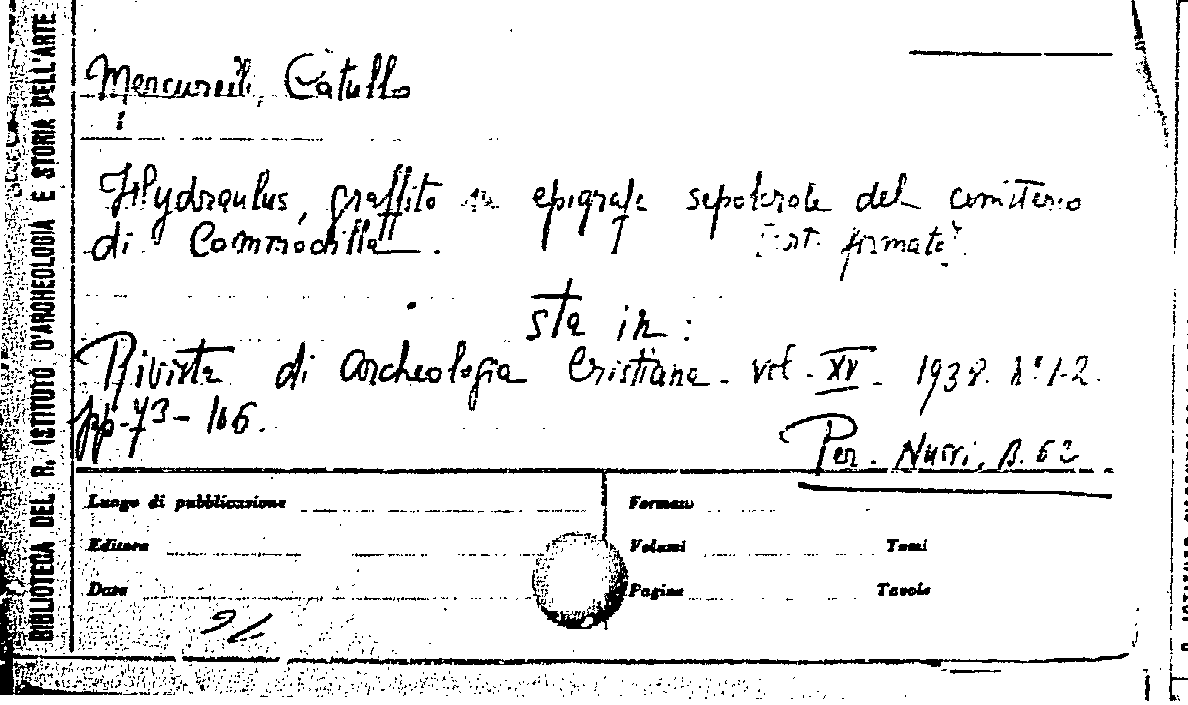 BIBLIOTECA DEL R. ISTITUTO D'ARCHEOLOGIA E STORIA DELL'ARTE
Mercurelli, Catullo
Hydraulus, graffito su epigrafe sepolcrale del cimitero
di Commodilla.
sta in:
Rivista di archeologia Cristiana. vol. XV. 1938. n° 1-2.
pp. 73-106.
Per. Nuovi. B. 62
Luogo di pubblicazione
Formato
Editore
Volumi
Tomi
Data
Pagine
Tavole